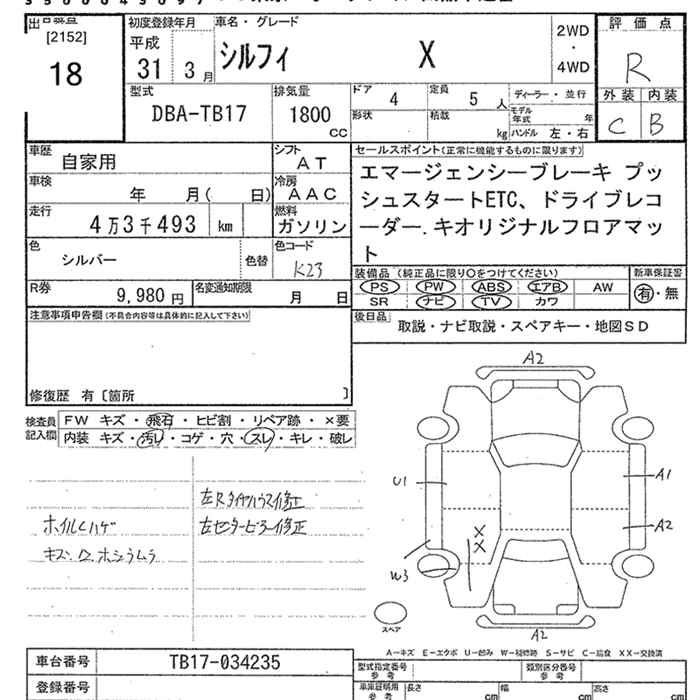 [2152]
18
初度登録年月
平成
31 3月
車名・グレード
シルフィ X
2WD
・
4WD
評価点
R
外装 内装
C B
型式
DBA-TB17
排気量
1800
CC
ドア 4
定員 5 人
ディーラー・並行
形状
積載 kg
モデル年式 年
ハンドル 左・右
車歴 自家用
シフト AT
車検 年 月( 日)
冷房 AAC
走行 4万3千493 km
燃料 ガソリン
色 シルバー 色替
色コード K23
R券 9,980円
名変通知期限 月 日
セールスポイント(正常に機能するものに限ります)
エマージェンシーブレーキ プッ
シュスタートETC、ドライブレコ
ーダー.キオリジナルフロアマッ
ト
装備品 (純正品に限り○をつけてください)
新車保証書
PS PW ABS エアB AW
SR ナビ TV カワ
有・無
後日品
取説・ナビ取説・スペアキー・地図SD
注意事項申告欄(不具合内容等は具体的に記入して下さい)
修復歴 有〔箇所 〕
検査員
記入欄
FW キズ・飛石・ヒビ割・リペア跡・×要
内装 キズ・汚レ・コゲ・穴・スレ・キレ・破レ
左Rタイヤハウス修正
左センターピラー修正
ホイルCハゲ
A2
U1
A1
A2
XX
W3
A2
スペア
A-キズ E-エクボ U-凹み W-補修跡 S-サビ C-腐食 XX-交換済
車台番号 TB17-034235
登録番号
型式指定番号
参考
類別区分番号
参考
車庫証明用
参考
長さ cm
幅 cm
高さ cm